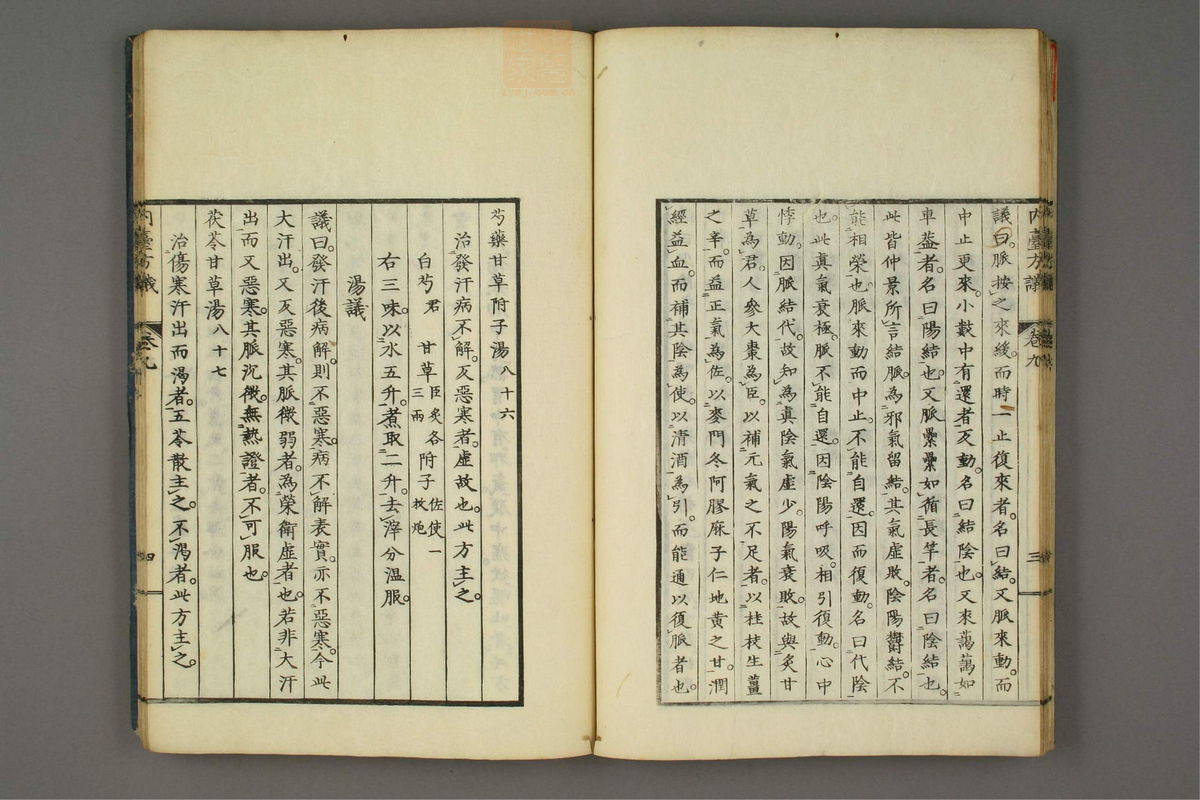 議曰。脈按之來緩。而時一止復來者。名曰結。又脈來動。而
中止更來。小數中有還者。反動。名曰結陰也。又來藹藹如
車蓋者。名曰陽結也。又脈纍纍如循長竿者。名曰陰結也。
此皆仲景所言結脈。為邪氣留結。其氣虛敗。陰陽欝結。不
能相榮也。脈來動而中止。不能自還。因而復動。名曰代陰
也。此真氣衰極。脈不能自還。因陰陽呼吸。相引復動。心中
悸動。因脈結代。故知為真陰氣虛少。陽氣衰敗。故與炙甘
草為君。人參大棗為臣。以補元氣之不足者。以桂枝生薑
之辛。而益正氣為佐。以麥門冬阿膠麻子仁地黃之甘。潤
經益血。而補其陰為使。以清酒為引。而能通以復脈者也。
內臺方議 卷九 三
芍藥甘草附子湯八十六
治發汗病不解。反惡寒者。虛故也。此方主之。
白芍君 甘草臣炙各三兩 附子佐使一枚炮
右三味。以水五升。煮取二升。去滓分溫服。
湯議
議曰。發汗後病解。則不惡寒。病不解表實。亦不惡寒。今此
大汗出。又反惡寒。其脈微弱者。為榮衛虛者也。若非大汗
出而又惡寒。其脈沉微。無熱證者。不可服也。
茯苓甘草湯八十七
治傷寒汗出而渴者。五苓散主之。不渴者。此方主之。
內臺方議 卷九 四